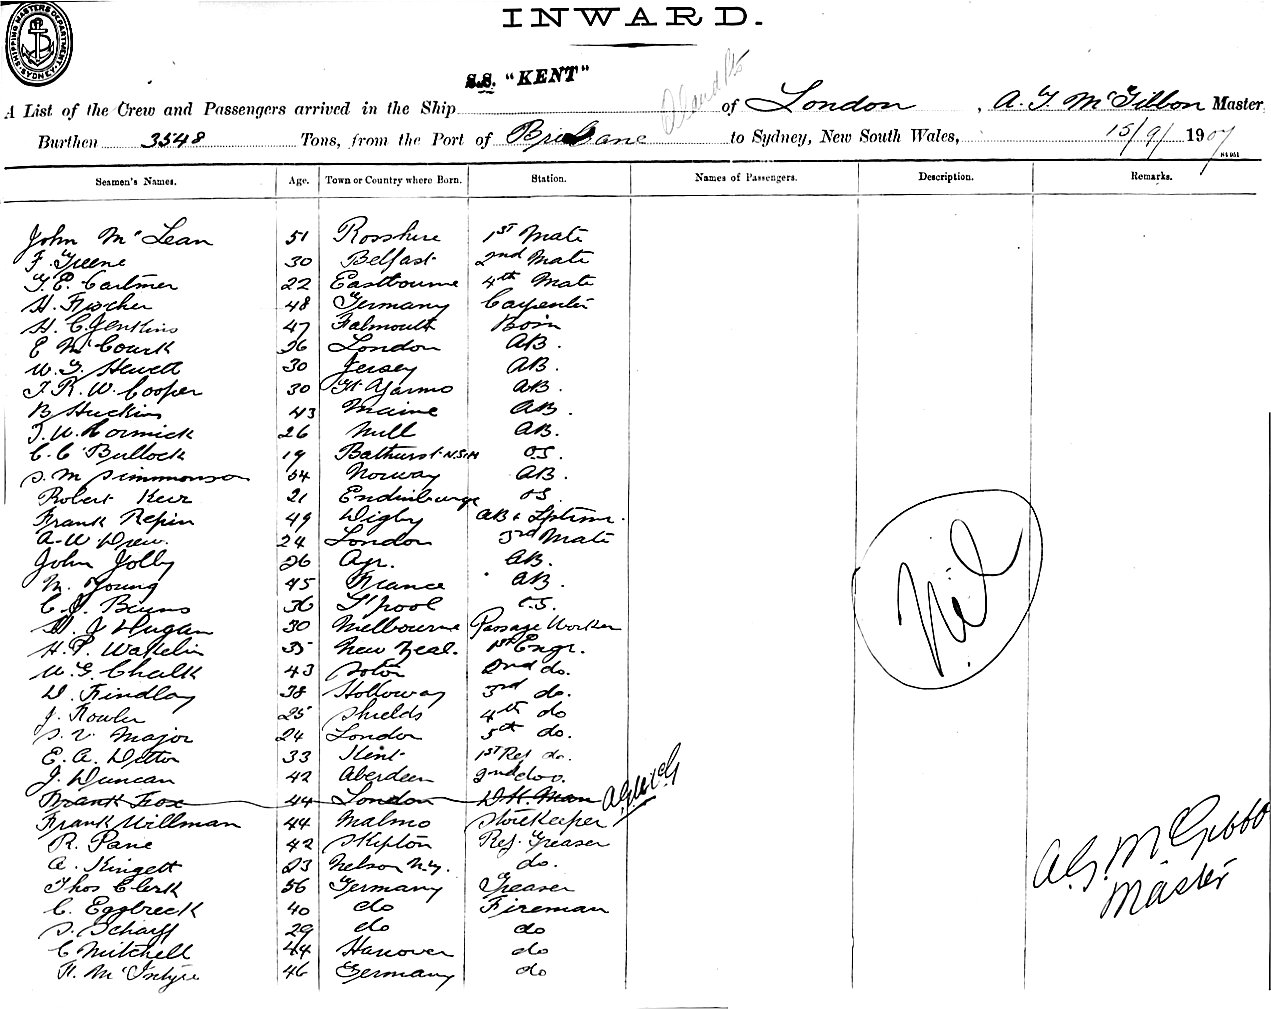 SHIPPING MASTERS DEPARTMENT SYDNEY
INWARD.
S.S. "KENT"
A List of the Crew and Passengers arrived in the Ship of London, A. G. McGibbon Master
Burthen 3548 Tons, from the Port of Brisbane to Sydney, New South Wales, 15/9/1907
Seamen's Names. Age. Town or Country where Born. Station. Names of Passengers. Description. Remarks.
John McLean 51 Rosshire 1st Mate
F. Greene 30 Belfast 2nd Mate
22 Eastbourne 4th Mate
H. Fischer 48 Germany Carpenter
H. C. Jenkins 47 Falmouth Bosn
E McCourk 36 London AB.
W. G. Hewett 30 Jersey AB.
F. R. W. Cooper 30 Gt Yarmo AB.
B Huckins 43 Maine AB.
26 Hull AB.
C. C. Bullock 19 Bathurst N.S.W OS.
S. M Simmonson 54 Norway AB.
Robert Keir 21 Endinburge OS
Frank Repin 49 Digby AB & Lptimr.
A. W Drew. 24 London 3rd Mate
John Jolly 26 Ayr. AB.
M. Young 45 France AB.
C. J. Binns 36 L'pool O.S.
H. J Dugan 30 Melbourne Passage Worker
H. P. Wakelin 35 New Zeal. 1st Engr.
W. G. Chalk 43 Soton 2nd do.
D. Findlay 38 Holloway 3rd do.
J. Fowler 25 Shields 4th do
S. V. Major 24 London 5th do.
E. A. Ditton 33 Kent 1st Ref do.
J. Duncan 42 Aberdeen 2nd do o.
Frank Fox 44 London D.K. Man A.G.McG
Frank Willman 44 Malmo Storekeeper
R. Pane 42 Skipton Ref. Greaser
A. Kingett 23 Nelson N.Z. do.
Thos Clerk 56 Germany Greaser
C. Eggbreck 40 do Fireman
S. Scharff 29 do do
C Mitchell 44 Hanover do
H. McIntyre 46 Germany do
Nil
A. G. McGibbon
Master